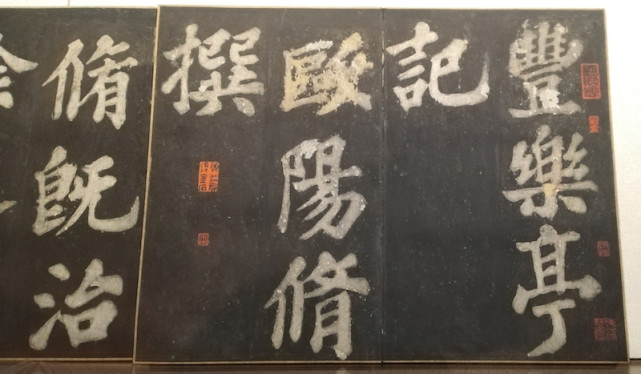 豐樂亭
記
歐陽脩
撰
脩既治